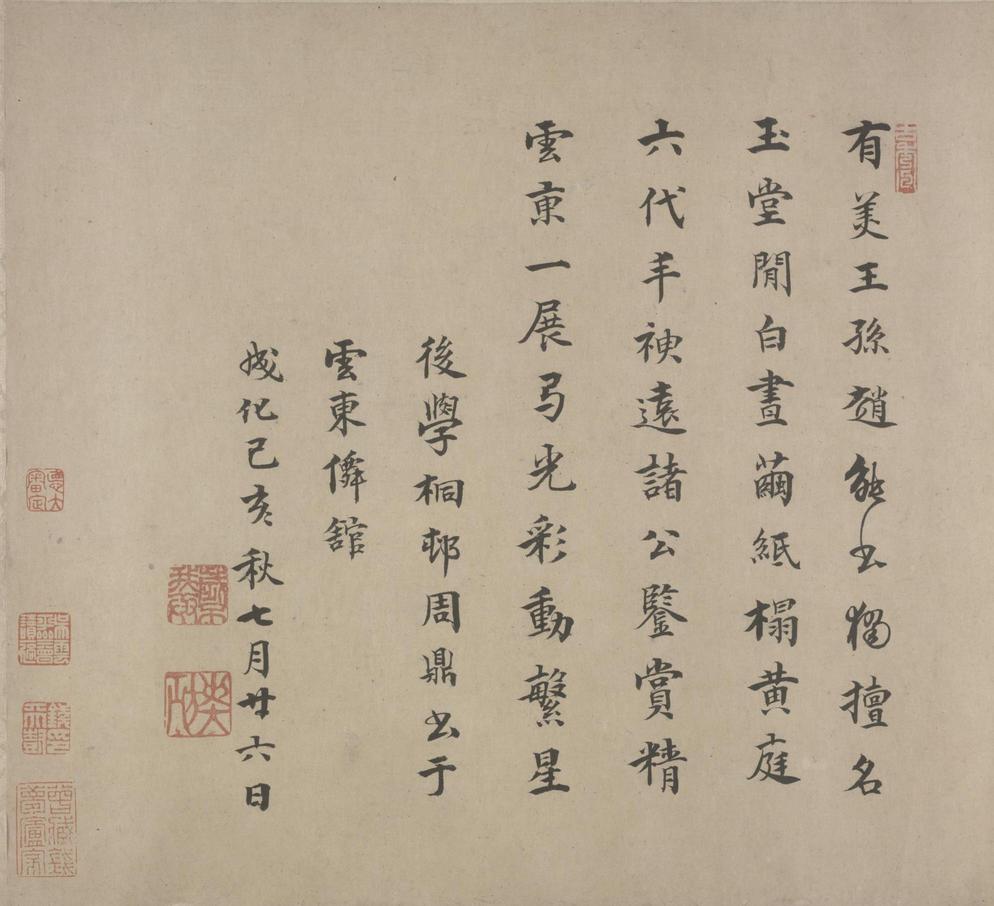 有美王孫趙能書獨擅名
玉堂閒白晝繭紙榻黄庭
六代羊神遠諸公鑒賞精
雲東一展弓光彩動繁星
後學桐邨周鼎書于
雲東僊館
成化己亥秋七月廿六日